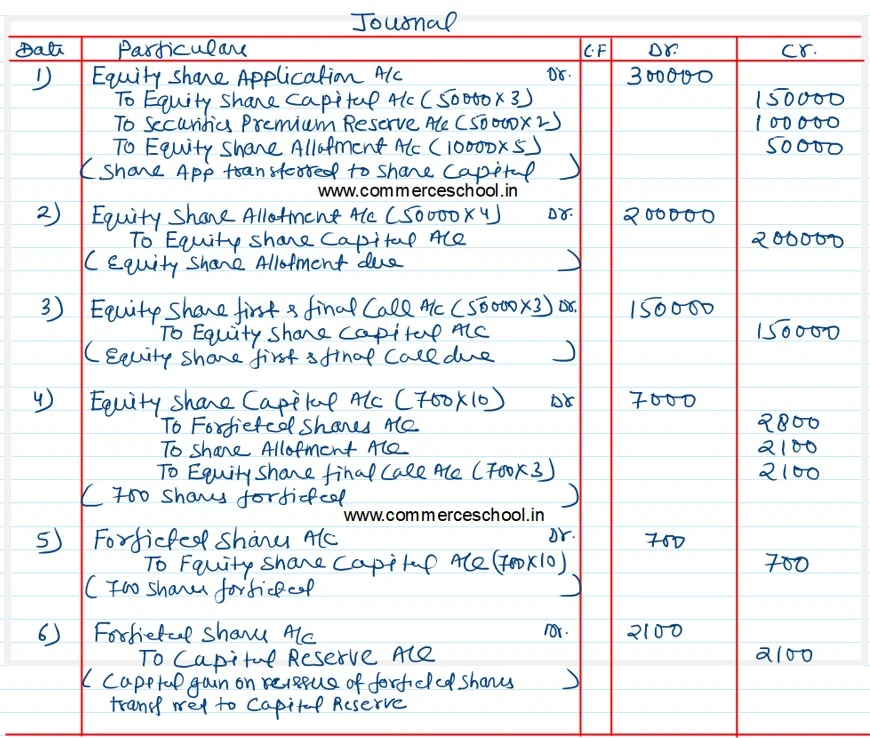 Journal
Date Particulars L.F Dr. Cr.
1) Equity Share Application A/c Dr. 300000
To Equity Share Capital A/c (50000×3) 150000
To Securities Premium Reserve A/c (50000×2) 100000
To Equity Share Allotment A/c (10000×5) 50000
(Share App transferred to Share Capital)
www.commerceschool.in
2) Equity Share Allotment A/c (50000×4) Dr. 200000
To Equity Share Capital A/c 200000
(Equity Share Allotment due)
3) Equity Share first & final Call A/c (50000×3) Dr. 150000
To Equity Share Capital A/c 150000
(Equity Share first & final Call due)
4) Equity Share Capital A/c (700×10) Dr 7000
To Forfieted Shares A/c 2800
To Share Allotment A/c 2100
To Equity Share final Call A/c (700×3) 2100
(700 Shares forfieted)
www.commerceschool.in
5) Forfieted Shares A/c Dr. 700
To Equity Share Capital A/c (700×10) 700
(700 Shares forfieted)
6) Forfieted Shares A/c Dr. 2100
To Capital Reserve A/c 2100
(Capital gain on reissue of forfieted shares)
transferred to Capital Reserve